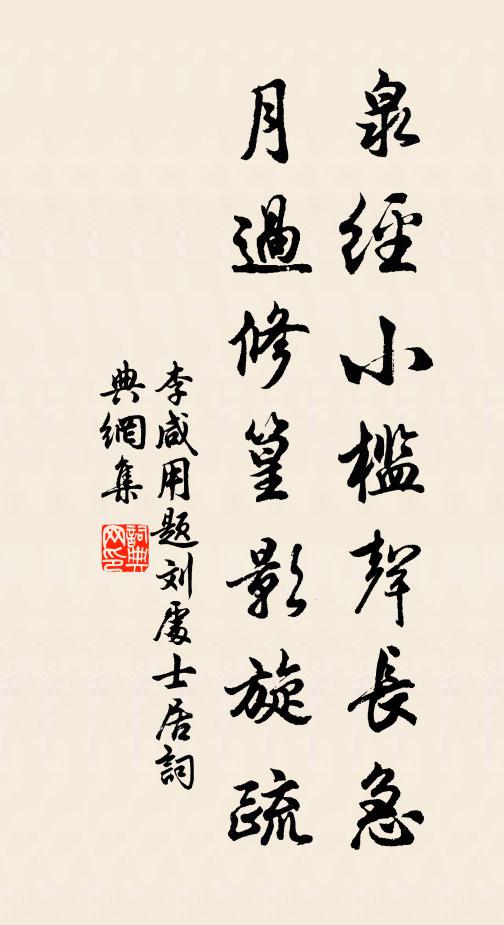 泉經小檻聲長急
月過修篁影旋疏
李咸用題刘處士居詞
典網集
詞典网印